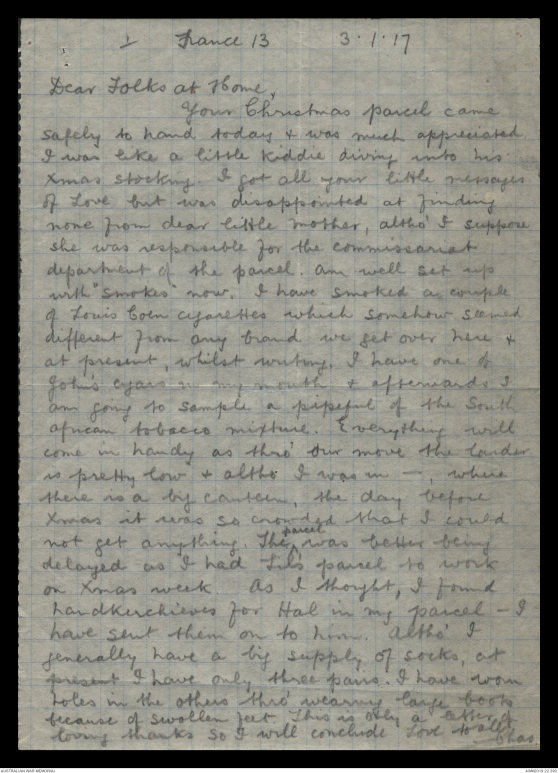 1 France 13 3.1.17
Dear Folks at Home,
Your Christmas parcel came
safely to hand today & was much appreciated
I was like a little kiddie diving into his
Xmas stocking. I got all your little messages
of Love but was disappointed at finding
none from dear little mother, altho' I suppose
she was responsible for the commissariat
department of the parcel. am well set up
with "smokes" now. I have smoked a couple
of Louis Coen cigarettes which somehow seemed
different from any brand we get over here &
at present, whilst writing, I have one of
John's cigars in my mouth & afterwards I
am going to sample a pipeful of the South
african tobacco mixture. Everything will
come in handy as thro' our move the larder
is pretty low & altho I was in —, where
there is a big canteen, the day before
Xmas it was so crowded that I could
not get anything. The parcel was better being
delayed as I had Lil's parcel to work
on Xmas week. As I thought, I found
handkerchieves for Hal in my parcel - I
have sent them on to him. Altho' I
generally have a big supply of socks, at
present I have only three pairs. I have worn
holes in the others thro' wearing large boots
because of swollen feet. This is only a letter of
loving thanks so I will conclude Love to all
Chas
AUSTRALIAN WAR MEMORIAL